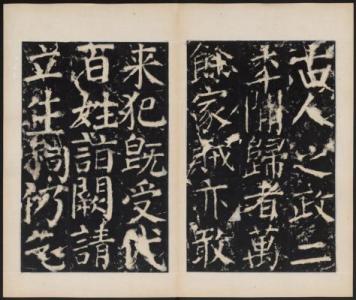 古人之政二
年間歸者萬
餘家賊亦敢
來犯既受代
百姓詣闕請
立生祠仍乞